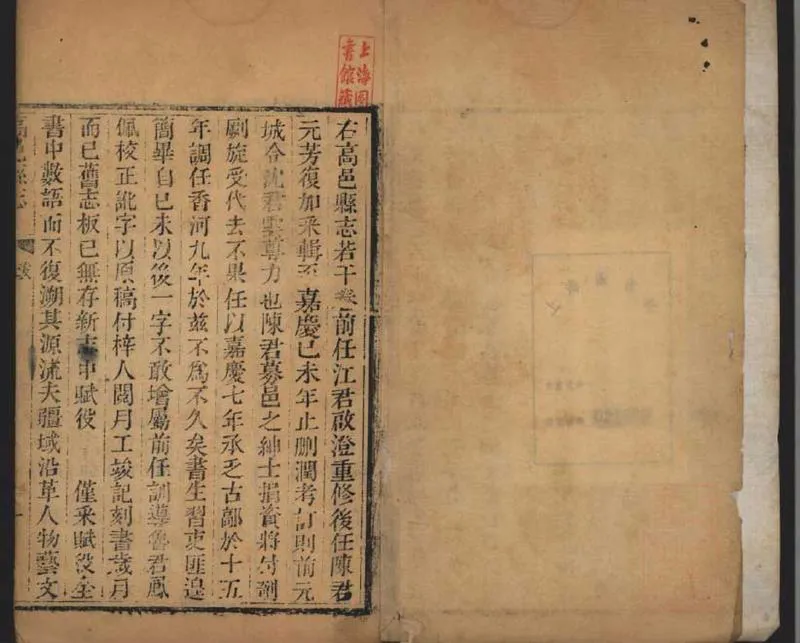 上海圖
書館藏
右高邑縣志若干卷前任江君啟澄重修後任陳君
元芳復加采輯至嘉慶己未年止刪潤考訂則前元
城令沈君雲尊力也陳君募邑之紳士捐資將付剞
劂旋受代去不果任以嘉慶七年承乏古鄗於十五
年調任香河九年於茲不為不久矣書生習吏匪遑
簡畢自己未以後一字不敢增屬前任訓導魯君鳳
佩校正訛字以原稿付梓人閱月工竣記刻書歲月
而已舊志板已無存新志中賦役 僅采賦役全
書中數語而不復溯其源流夫疆域沿革人物藝文
高邑縣志 跋